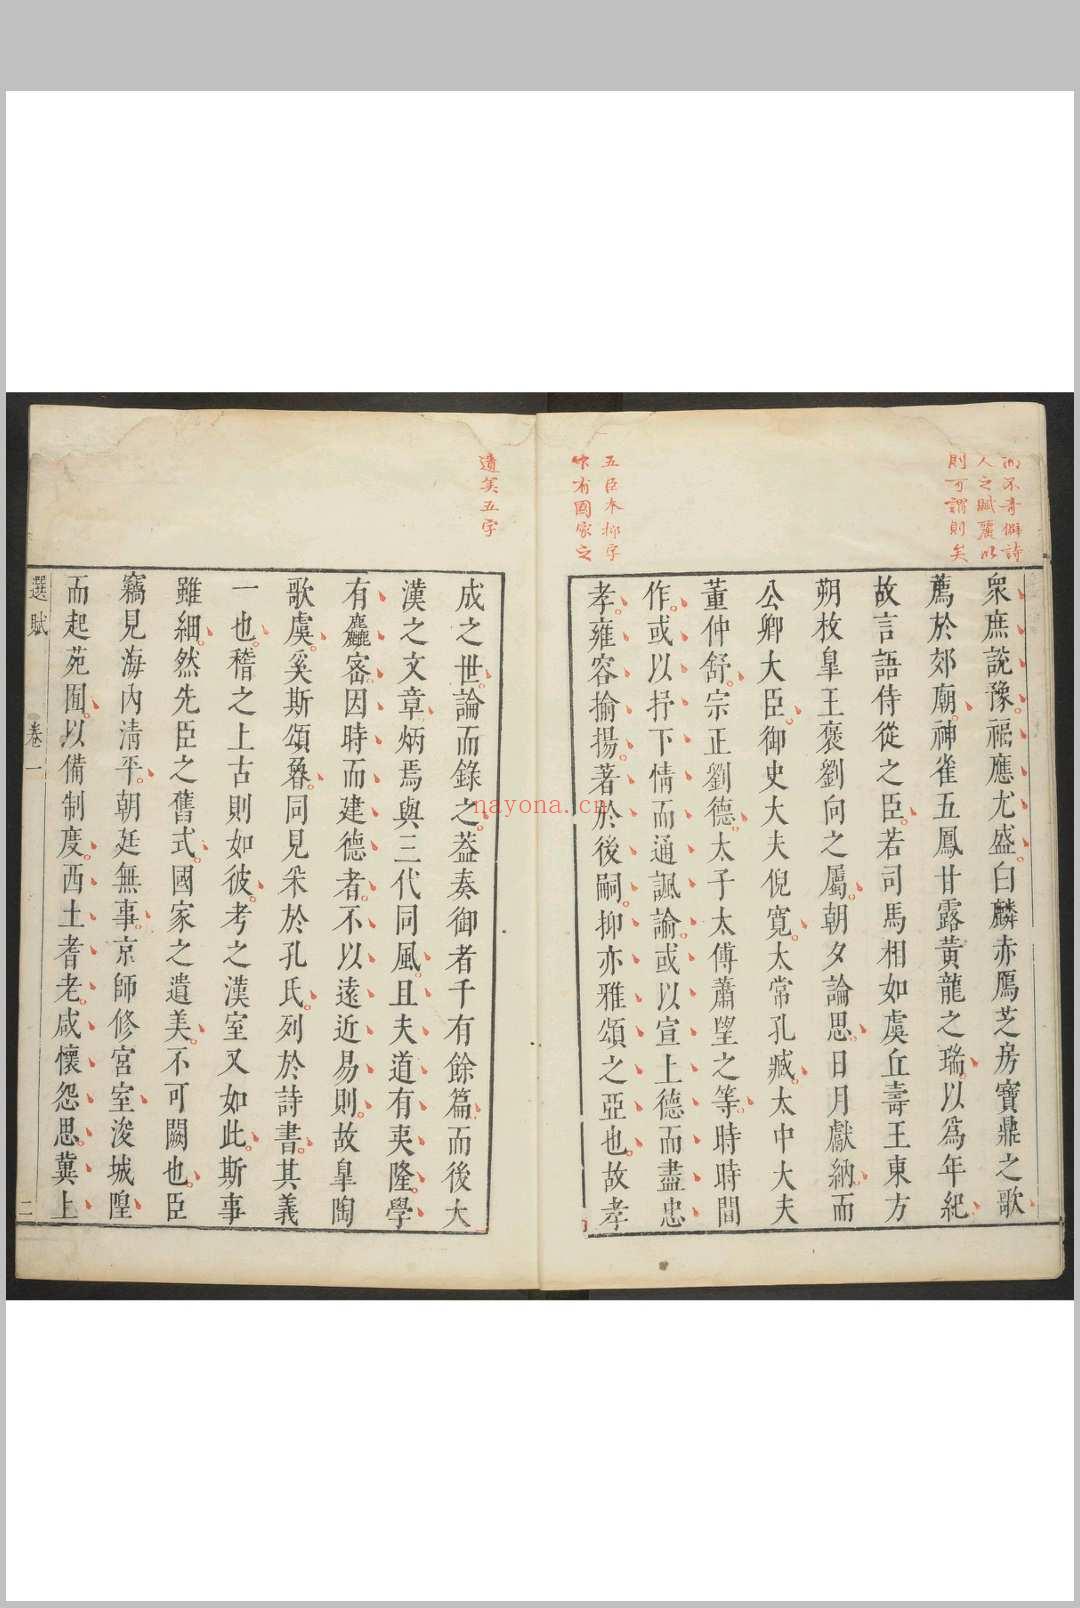 而不奇僻詩
人之賦麗以
則可謂則矣
五臣本字
下有國家之
遺美五字
衆庶說豫福應尤盛白麟赤鴈芝房寶鼎之歌
薦於郊廟神雀五鳳甘露黃龍之瑞以爲年紀
故言語侍從之臣若司馬相如虞丘壽王東方
朔枚臯王褒劉向之屬朝夕論思日月獻納而
公卿大臣御史大夫倪寬太常孔臧太中大夫
董仲舒宗正劉德太子太傅蕭望之等時時間
作或以抒下情而通諷諭或以宣上德而盡忠
孝雍容揄揚著於後嗣抑亦雅頌之亞也故孝
成之世論而錄之葢奏御者千有餘篇而後大
漢之文章炳焉與三代同風且夫道有夷隆學
有麤密因時而建德者不以遠近易則故臯陶
歌虞奚斯頌魯同見采於孔氏列於詩書其義
一也稽之上古則如彼考之漢室又如此斯事
雖細然先臣之舊式國家之遺美不可闕也臣
竊見海內清平朝廷無事京師修宮室浚城隍
而起苑囿以備制度西土耆老咸懷怨思冀上
選賦 卷一 二
nayona.cn